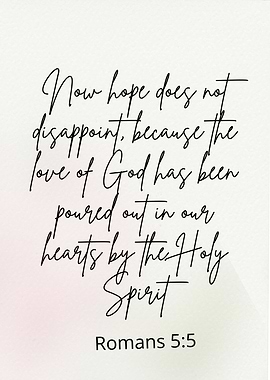 Now hope does not
disappoint, because the
love of God has been
poured out in our
hearts by the Holy
Spirit
Romans 5:5